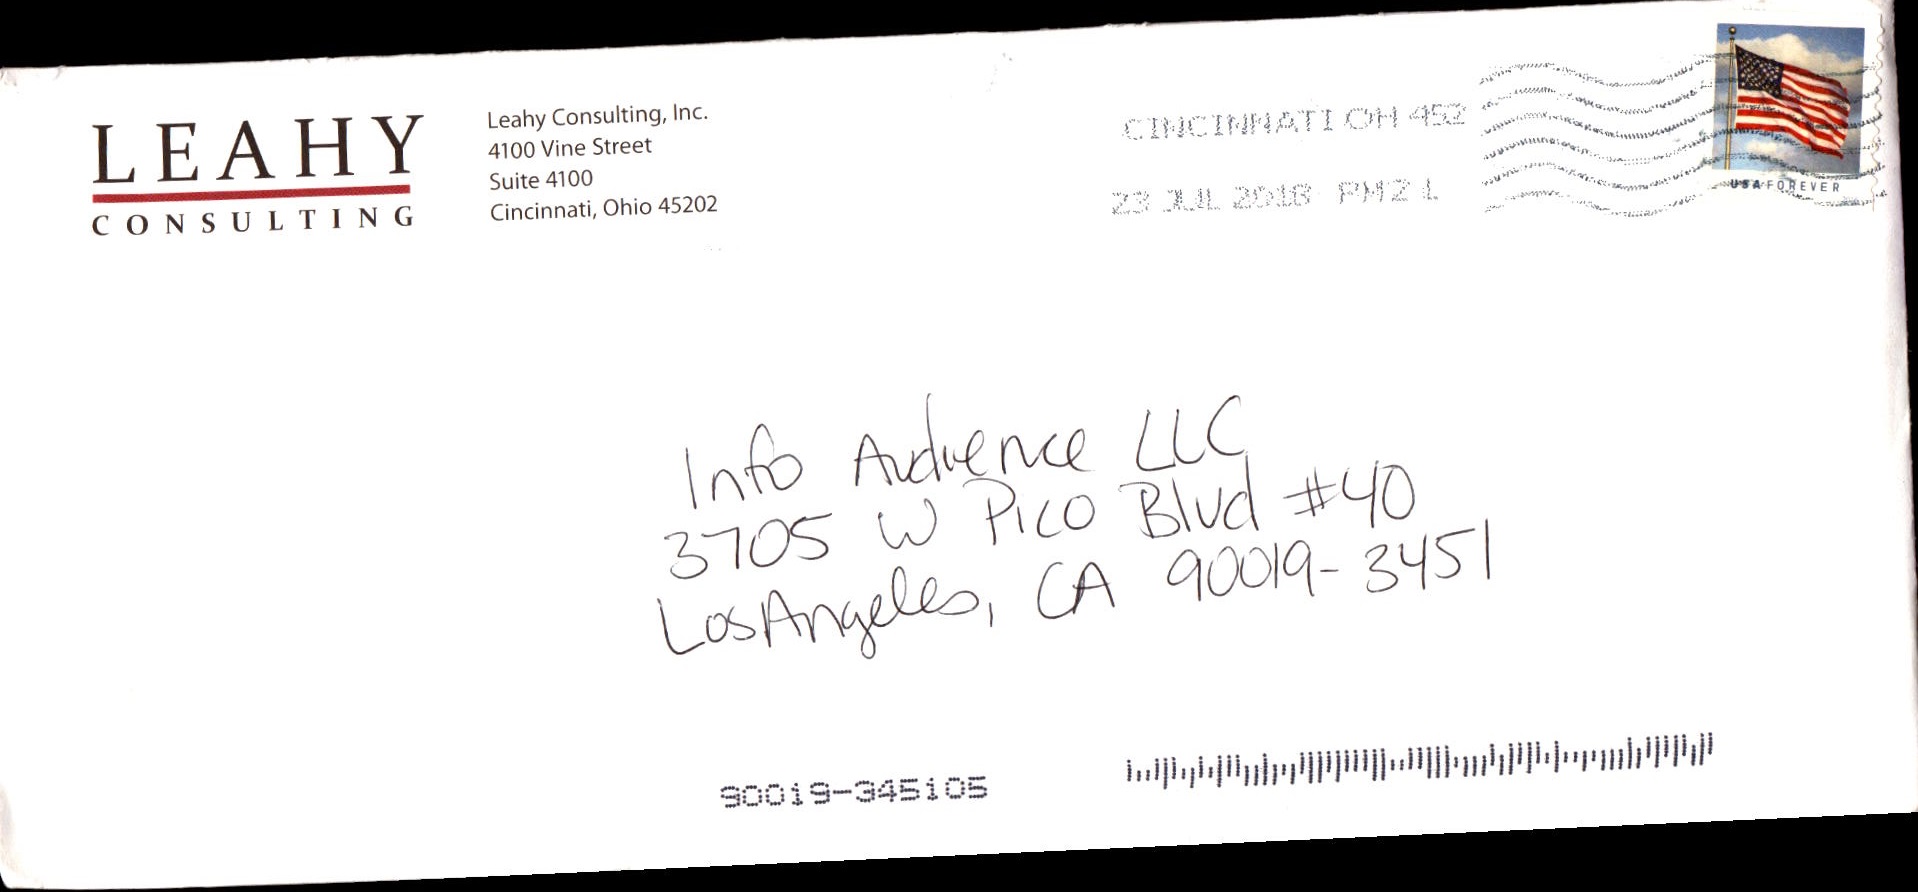 LEAHY
CONSULTING
Leahy Consulting, Inc.
4100 Vine Street
Suite 4100
Cincinnati, Ohio 45202
CINCINNATI OH 452
23 JUL 2018 PM 2 L
USA FOREVER
Info Audience LLC
3705 W Pico Blvd #40
Los Angeles, CA 90019-3451
90019-345105